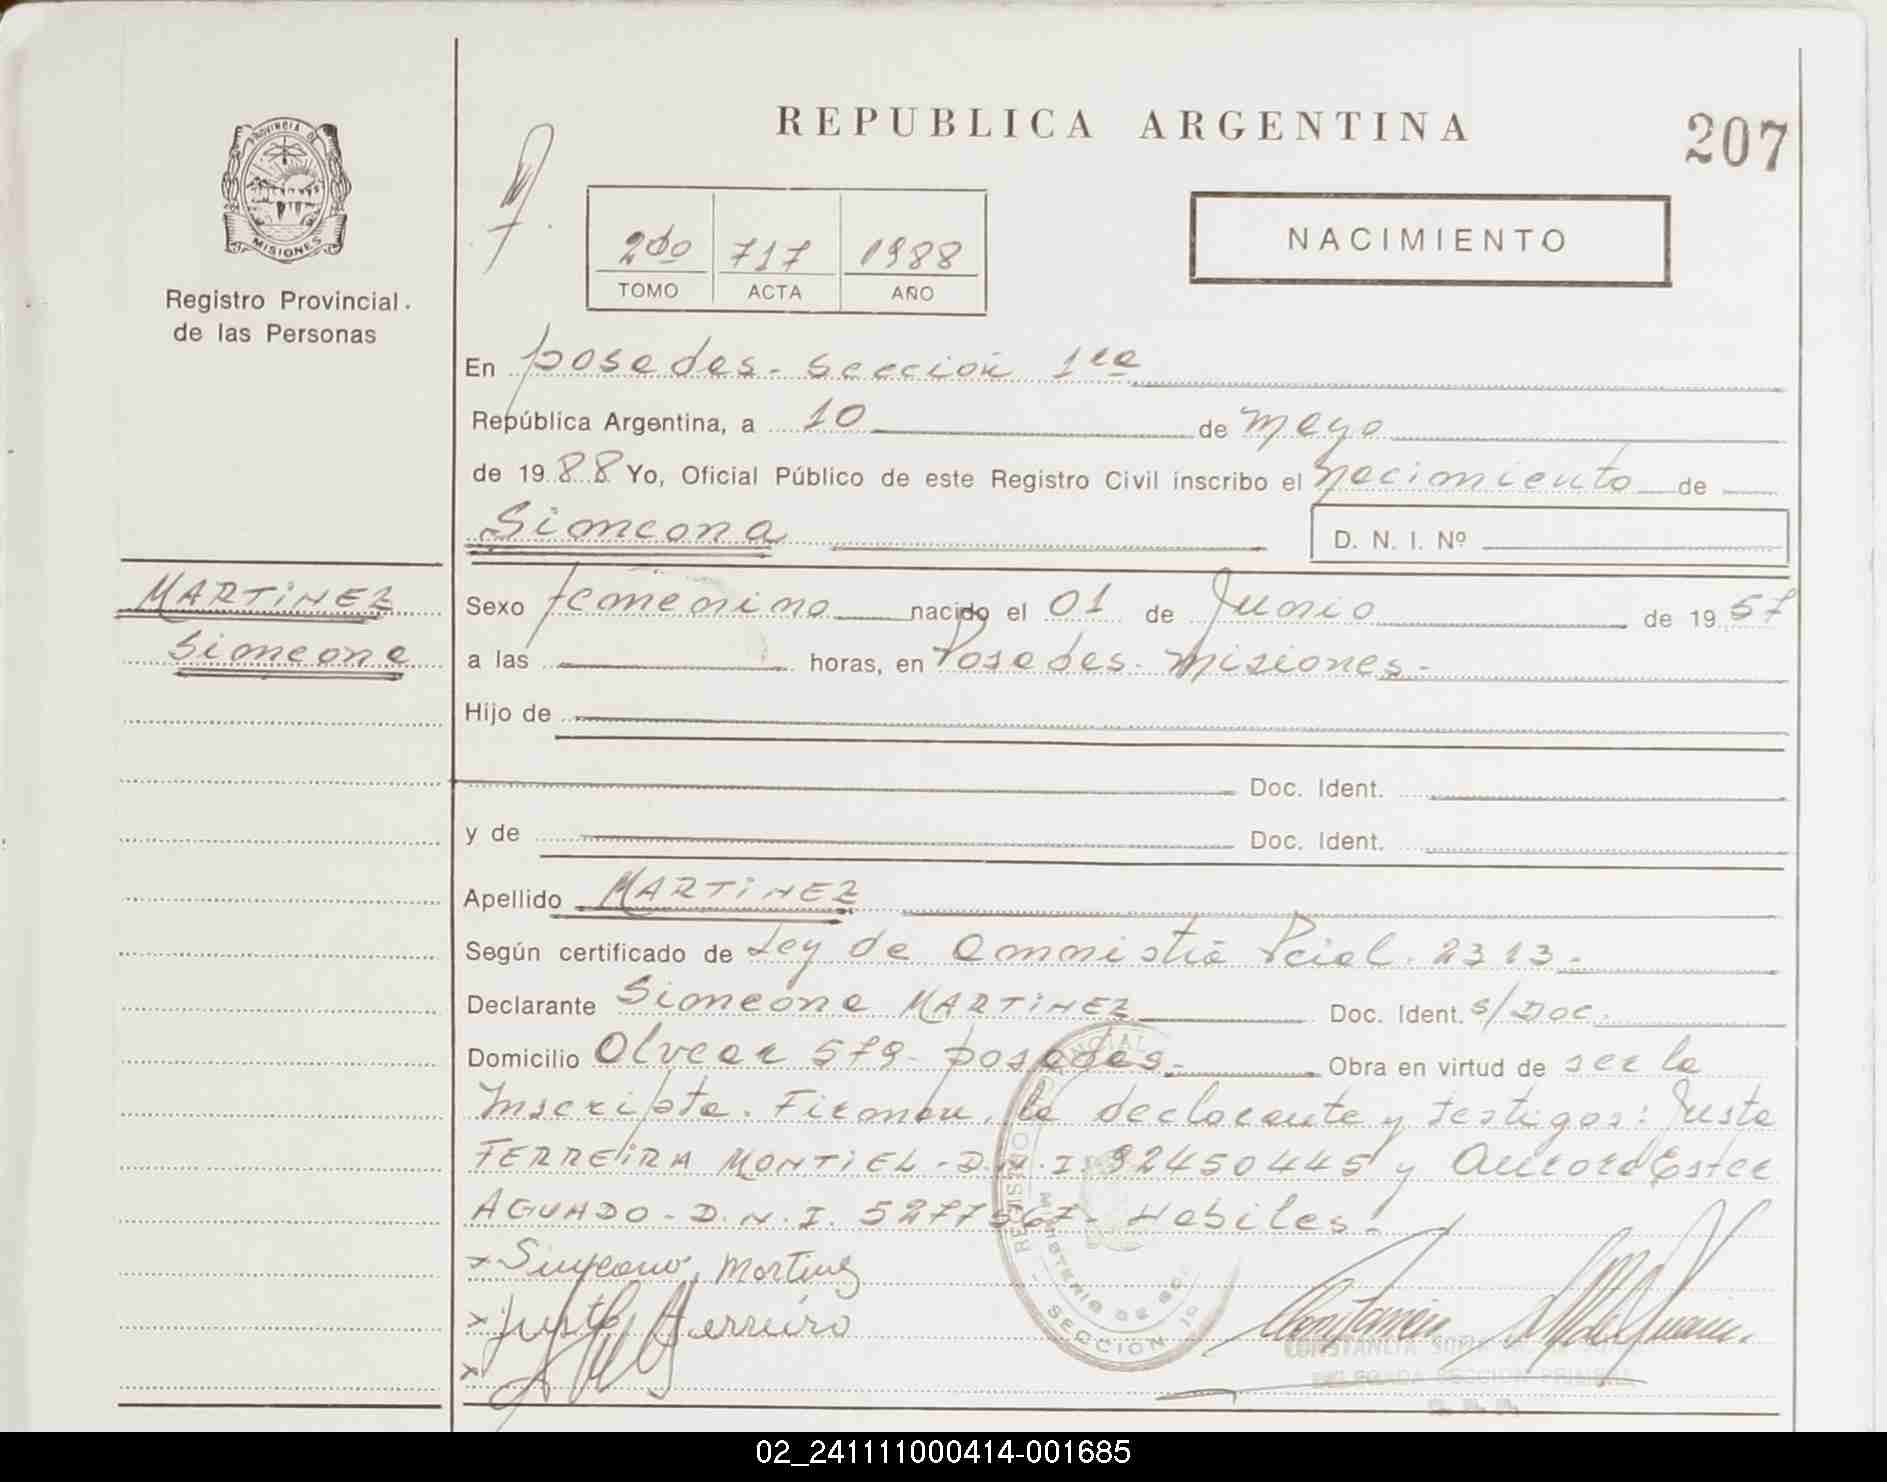 REPUBLICA ARGENTINA
207
PROVINCIA DE
MISIONES
Registro Provincial
de las Personas
2do 717 1988
TOMO ACTA AÑO
NACIMIENTO
En posadas - sección 1ra
República Argentina, a 10 de mayo
de 1988 Yo, Oficial Público de este Registro Civil inscribo el nacimiento de
Simeona D. N. I. Nº
MARTINEZ
Simeona
Sexo femenino nacido el 01 de Junio de 1957
a las horas, en Posadas - misiones -
Hijo de
Doc. Ident.
y de Doc. Ident.
Apellido MARTINEZ
Según certificado de Ley de Amnistia Pcial. 2313 -
Declarante Simeona MARTINEZ Doc. Ident. s/Doc.
Domicilio Alvear 579 - posadas - Obra en virtud de ser la
Inscripta. Firman, la declarante y testigos: Justa
FERREIRA MONTIEL - D.N.I. 92450445 y Aurora Ester
AGUADO - D.N.I. 5277567 - Habiles -
x Simeona Martinez
x Justa Ferreira
x
SECCION 1º
DELEGADA SECCION PRIMERA
02_241111000414-001685